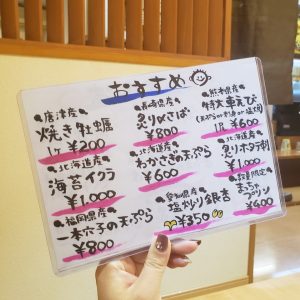 おすすめ
唐津産
焼き牡蠣
1ヶ ¥200
北海道産
海苔イクラ
¥1,000
福岡県産
一本穴子の天ぷら
¥800
長崎県産
炙りさば
¥800
北海道産
わかさぎの天ぷら
¥600
愛知県産
塩炒り銀杏
¥350
熊本県産
特大車えび
(天ぷらor刺身or塩焼)
1尾 ¥600
北海道産
炙りホタテ刺
数量限定
まっちゃプリン
¥400